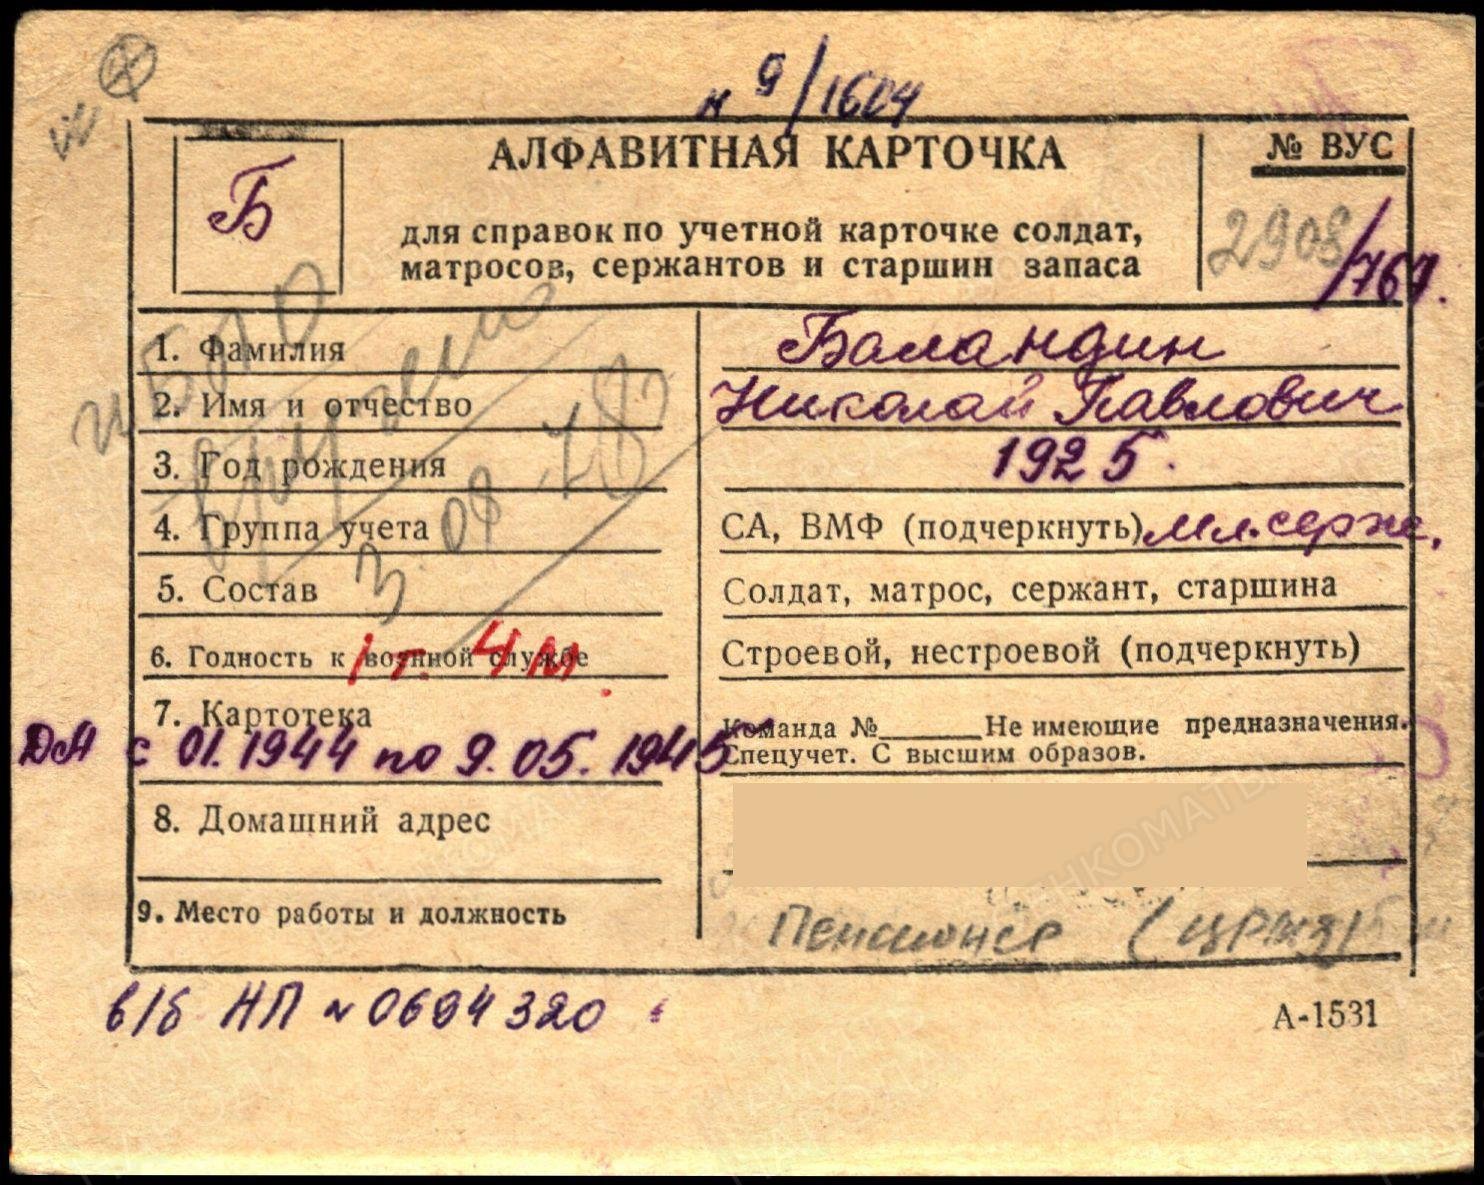 № 9/1604
АЛФАВИТНАЯ КАРТОЧКА
№ ВУС
Б
для справок по учетной карточке солдат,
матросов, сержантов и старшин запаса
2908/767.
1. Фамилия
Баландин
2. Имя и отчество
Николай Павлович
3. Год рождения
1925.
4. Группа учета
СА, ВМФ (подчеркнуть) мл. серж.
3.08.78
5. Состав
Солдат, матрос, сержант, старшина
6. Годность к военной службе
1 г. 4 м.
Строевой, нестроевой (подчеркнуть)
7. Картотека
Команда №______ Не имеющие предназначения.
ДА с 01.1944 по 9.05.1945
Спецучет. С высшим образов.
8. Домашний адрес
9. Место работы и должность
Пенсионер
в/б НП № 0694320
А-1531